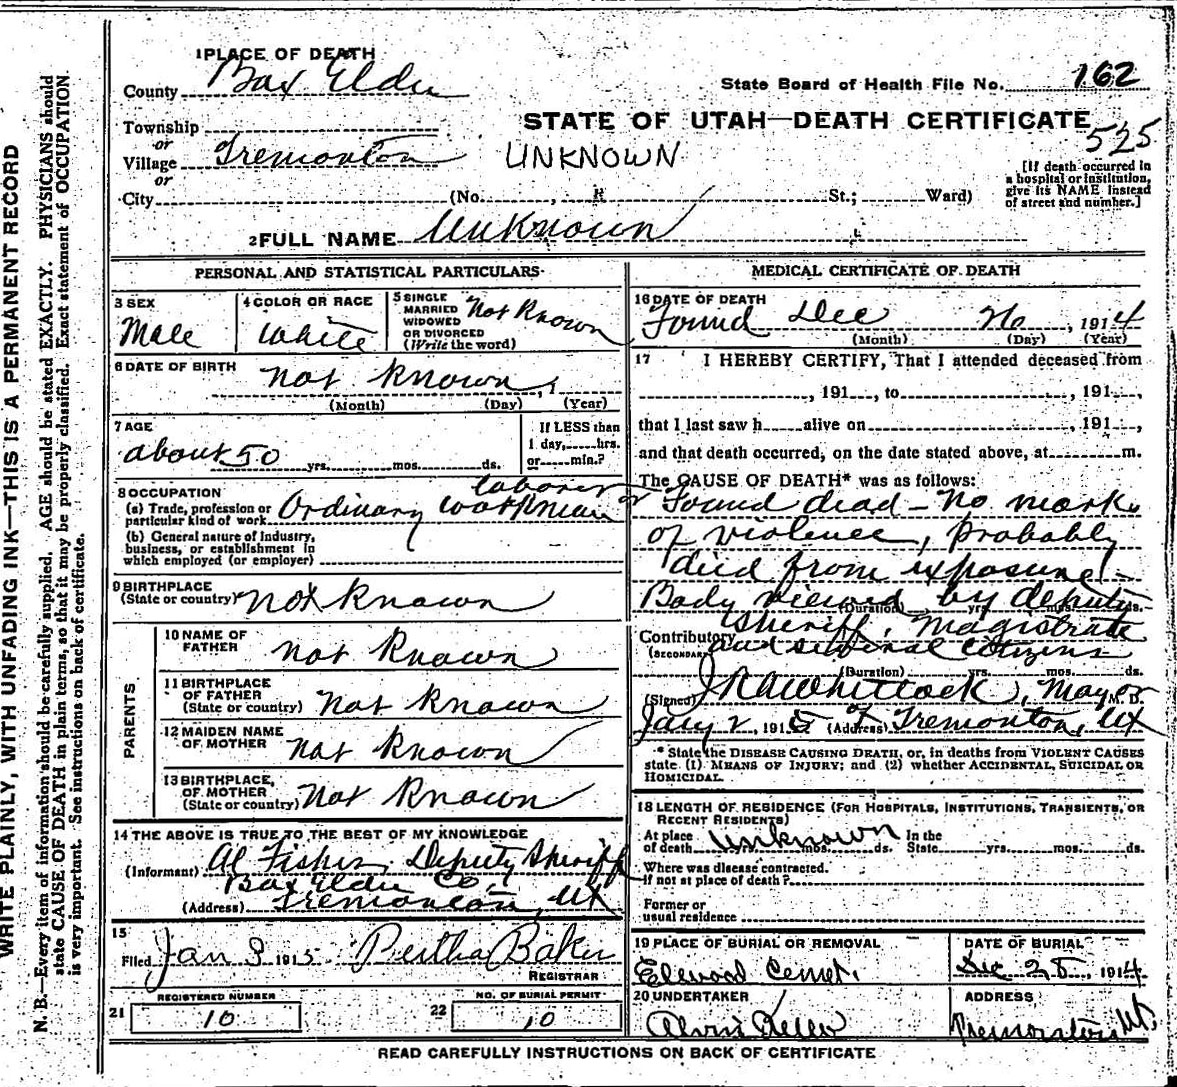 WRITE PLAINLY, WITH UNFADING INK—THIS IS A PERMANENT RECORD
N. B.—Every item of information should be carefully supplied. AGE should be stated EXACTLY. PHYSICIANS should
state CAUSE OF DEATH in plain terms, so that it may be properly classified. Exact statement of OCCUPATION
is very important. See instructions on back of certificate.
1 PLACE OF DEATH
County Box Elder
State Board of Health File No. 162
Township
or
Village Tremonton
or
City
STATE OF UTAH—DEATH CERTIFICATE
525
UNKNOWN
[If death occurred in
a hospital or institution,
give its NAME instead
of street and number.]
(No. , St.; Ward)
2 FULL NAME Unknown
PERSONAL AND STATISTICAL PARTICULARS
3 SEX
Male
4 COLOR OR RACE
White
5 SINGLE
MARRIED
WIDOWED
OR DIVORCED
(Write the word)
Not Known
6 DATE OF BIRTH
not known
(Month) (Day) (Year)
7 AGE
about 50 yrs. mos. ds.
If LESS than
1 day, hrs.
or min.?
8 OCCUPATION
(a) Trade, profession or
particular kind of work Ordinary workman
laborer or
(b) General nature of industry,
business, or establishment in
which employed (or employer)
9 BIRTHPLACE
(State or country) not known
PARENTS
10 NAME OF
FATHER not known
11 BIRTHPLACE
OF FATHER
(State or country) not known
12 MAIDEN NAME
OF MOTHER not known
13 BIRTHPLACE,
OF MOTHER
(State or country) Not known
14 THE ABOVE IS TRUE TO THE BEST OF MY KNOWLEDGE
(Informant) Al Fisher, Deputy Sheriff
Box Elder Co,
(Address) Tremonton, Ut
15
Filed Jan 3 1915 Bertha Baker
REGISTRAR
REGISTERED NUMBER
21 10
NO. OF BURIAL PERMIT
22 10
MEDICAL CERTIFICATE OF DEATH
16 DATE OF DEATH
Found Dec , 1914
(Month) (Day) (Year)
17 I HEREBY CERTIFY, That I attended deceased from
, 191 , to , 191 ,
that I last saw h alive on , 191 ,
and that death occurred, on the date stated above, at m.
The CAUSE OF DEATH* was as follows:
Found dead - No marks
of violence, probably
died from exposure -
Body viewed by deputy
(Duration) yrs. mos. ds.
sheriff, magistrate
Contributory and several citizens
(SECONDARY)
(Duration) yrs. mos. ds.
(Signed) Whitlock, Mayor M. D.
Jany 2, 1915 (Address) of Tremonton, Ut
* State the DISEASE CAUSING DEATH, or, in deaths from VIOLENT CAUSES
state (1) MEANS OF INJURY; and (2) whether ACCIDENTAL, SUICIDAL OR
HOMICIDAL.
18 LENGTH OF RESIDENCE (FOR HOSPITALS, INSTITUTIONS, TRANSIENTS, OR
RECENT RESIDENTS)
At place
of death unknown mos. ds. In the
State yrs. mos. ds.
Where was disease contracted.
if not at place of death?
Former or
usual residence
19 PLACE OF BURIAL OR REMOVAL
Elwood Cemet.
DATE OF BURIAL
Dec 28, 1914
20 UNDERTAKER
Alvin Keller
ADDRESS
Tremonton Ut.
READ CAREFULLY INSTRUCTIONS ON BACK OF CERTIFICATE